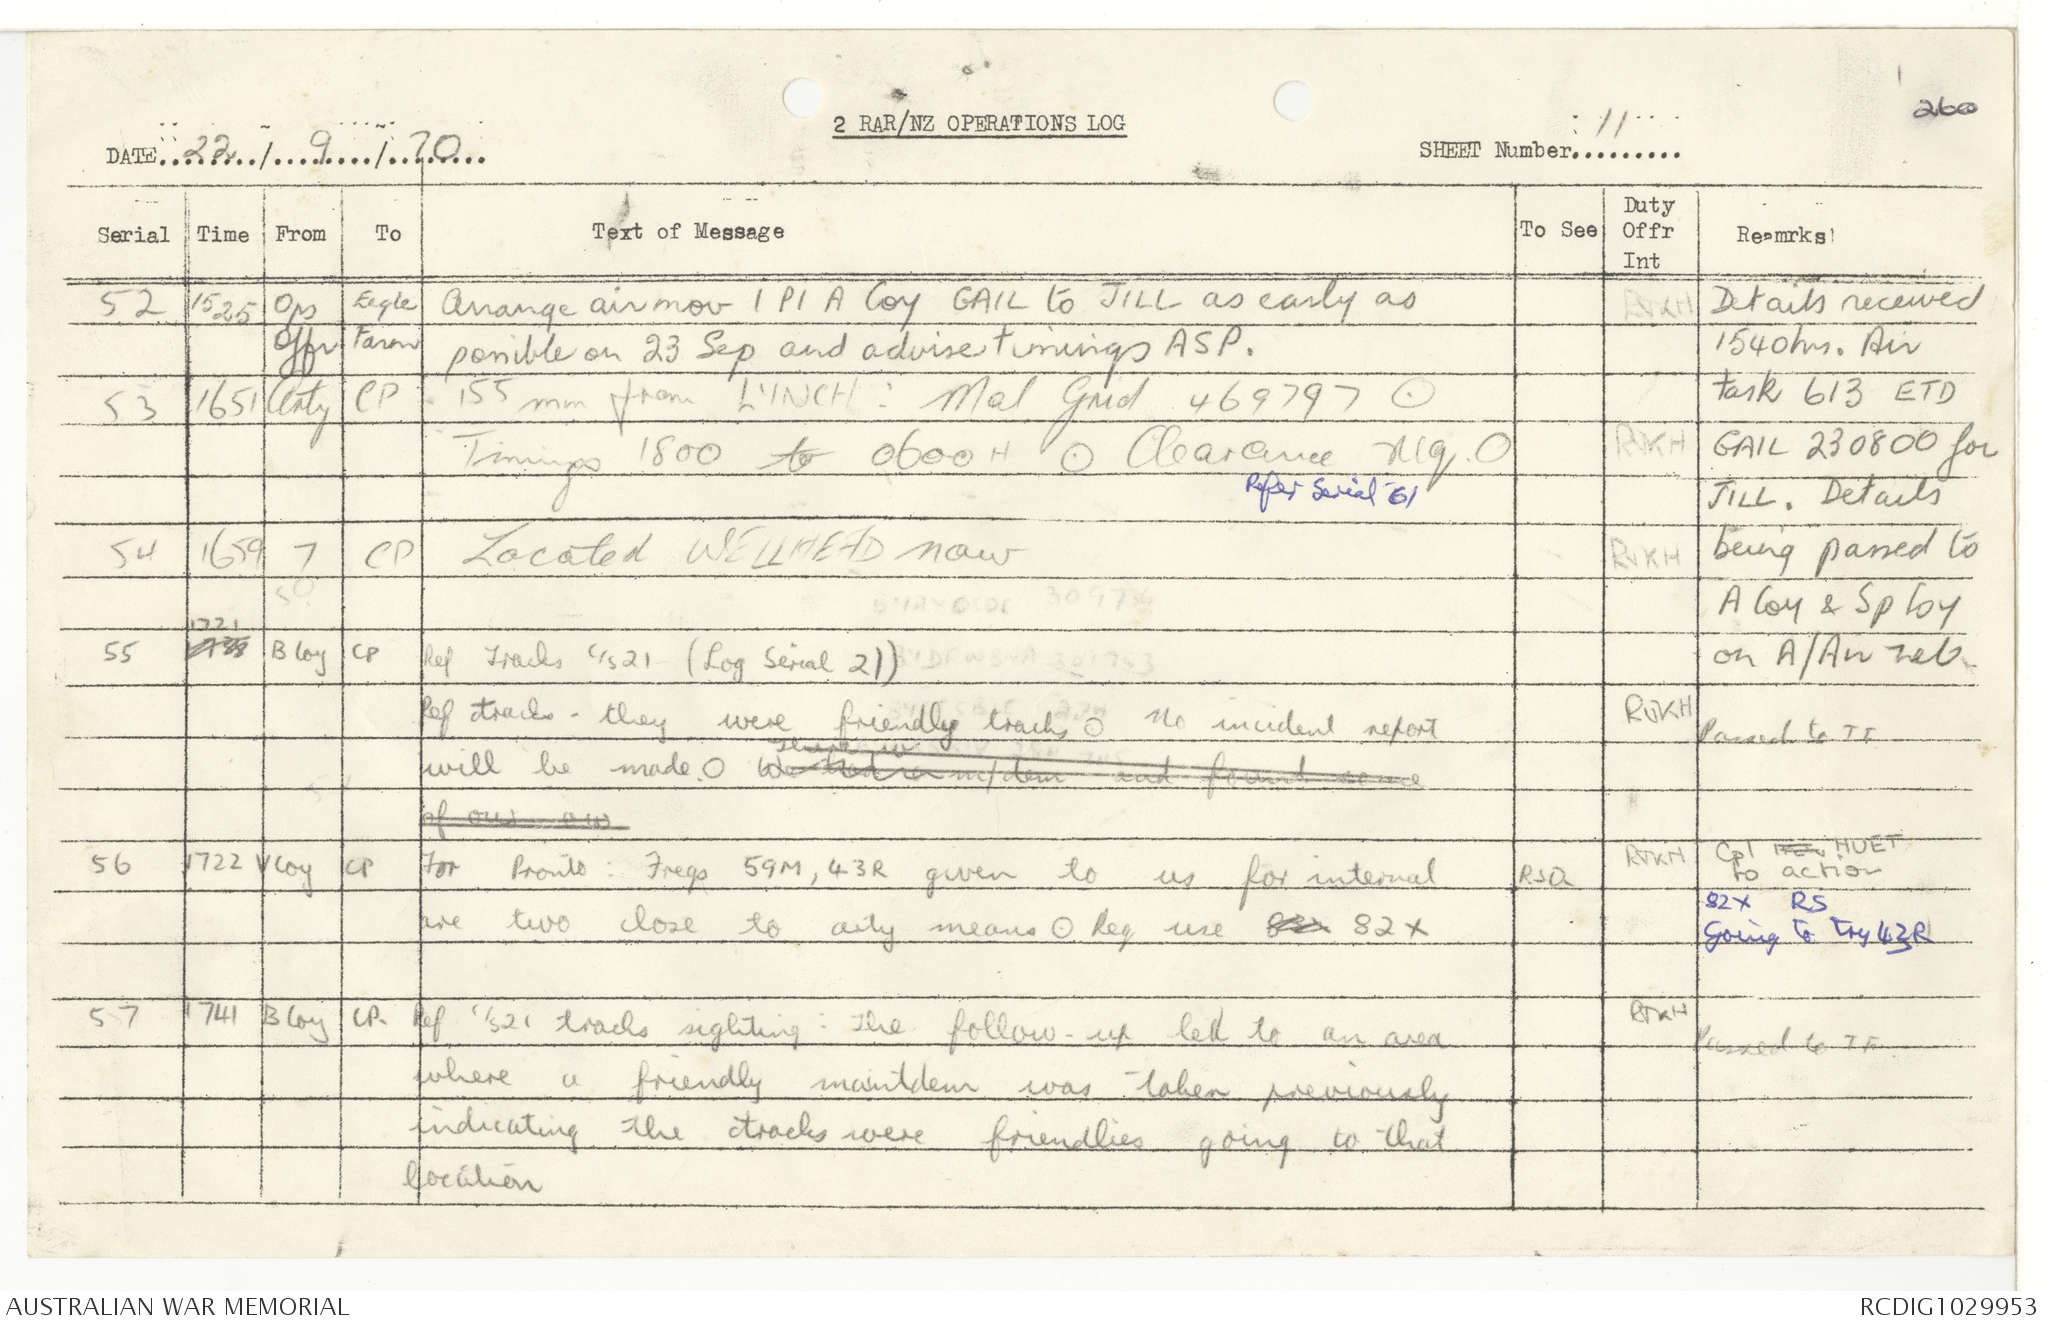 260
2 RAR/NZ OPERATIONS LOG
DATE 22 / 9 / 70
SHEET Number 11
Serial Time From To Text of Message To See Duty Offr Int Remrks
52 1525 Ops Eagle Arrange airmov 1 Pl A Coy GAIL to JILL as early as RVKH Details received
Offr Farm possible on 23 Sep and advise timings ASP. 1540hrs. Air
53 1651 Arty CP 155 mm from LYNCH: Mal Grid 469797 ⊙ task 613 ETD
Timings 1800 to 0600H ⊙ Clearance Mg. O RVKH GAIL 230800 for
Refer Serial 61 JILL. Details
54 1659 7 CP Located WELLHEAD now RVKH being passed to
50 A Coy & Sp Coy
1721
55 B Coy CP Ref Tracks C/S 21 (Log Serial 21) on A/Air net.
Ref tracks - they were friendly tracks ⊙ No incident report RVKH Passed to TF
will be made. O We had a m/dem and found some
of our own
56 1722 V Coy CP For Pronto: Freqs 59M, 43R given to us for internal RSO RVKH Cpl HUET
to action
are two close to arty means ⊙ Req use 82X 82X RS
Going to try 43R
57 1741 B Coy CP. Ref C/S 21 tracks sighting: The follow-up led to an area RVKH Passed to TF
where a friendly maintdem was taken previously
indicating the tracks were friendlies going to that
location
AUSTRALIAN WAR MEMORIAL
RCDIG1029953